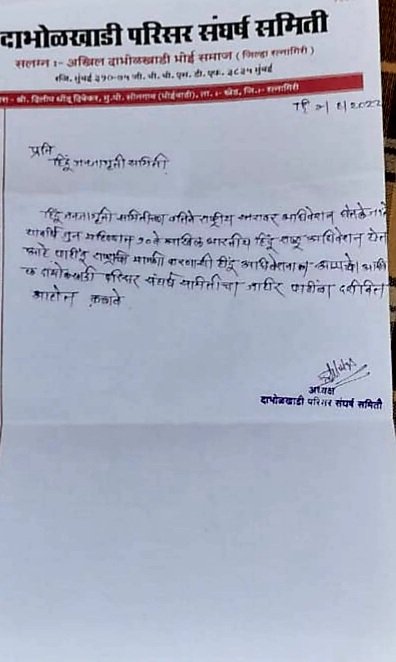 दाभोळखाडी परिसर संघर्ष समिती
सलग्न :- अखिल दाभोळखाडी भोई समाज ( जिल्हा रत्नागिरी )
रजि. मुंबई ३१०-७५ जी. बी. बी. एस. डी. एफ. ३८३५ मुंबई
श्री. दिलीप धोंडू दिवेकर, मु.पो. सोनगाव (भोईवाडी), ता. :- खेड, जि. :- रत्नागिरी
६/२०२२
प्रति
हिंदू जनजागृती समिती
हिंदू जनजागृती समितीच्या वतीने राष्ट्रीय स्तरावर अधिवेशन घेतले जाते
यावर्षी जून महिन्यात १०वे अखिल भारतीय हिंदू राष्ट्र अधिवेशन होत
आहे हिंदू
दाभोळखाडी परिसर संघर्ष समितीचा जाहीर पाठींबा दर्शवित
आहोत कळावे
अध्यक्ष
दाभोळखाडी परिसर संघर्ष समिती